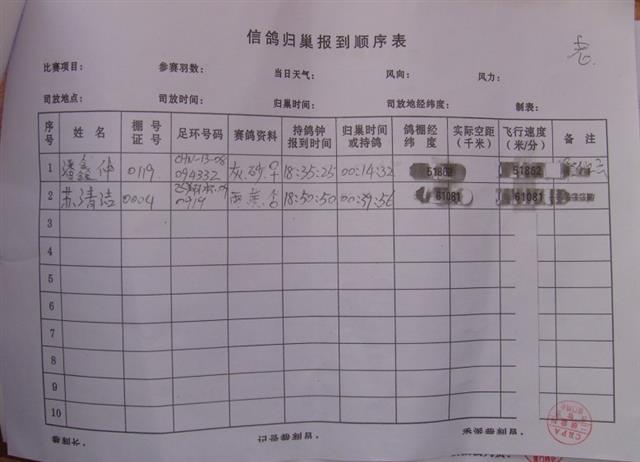 信鸽归巢报到顺序表
老
比赛项目： 参赛羽数： 当日天气： 风向： 风力：
司放地点： 司放时间： 归巢时间： 司放地经纬度： 制表：
序号 姓名 棚号证号 足环号码 赛鸽资料 持鸽钟报到时间 归巢时间或持鸽 鸽棚经纬度 实际空距（千米） 飞行速度（米/分） 备注
1 潘鑫仲 0119 CHN-13-08 094332 灰砂早 18:35:25 00:14:32 51862 51862
2 苏清洁 0004 0919 18:50:50 00:39:56 61081 61081
3
4
5
6
7
8
9
10
记录裁判员：
CRPA